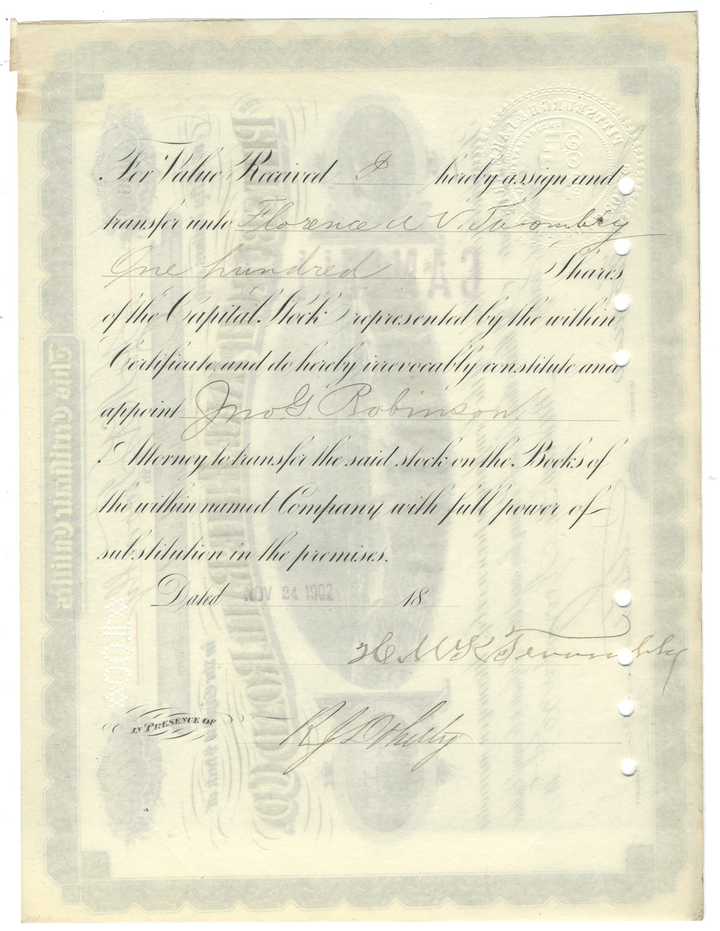 For Value Received I hereby assign and
transfer unto Florence A V Twombly
One hundred Shares
of the Capital Stock represented by the within
Certificate, and do hereby irrevocably constitute and
appoint Jno G. Robinson
Attorney to transfer the said stock on the Books of
the within named Company with full power of
substitution in the premises.
Dated NOV 24 1902 18
H McK Twombly
IN PRESENCE OF